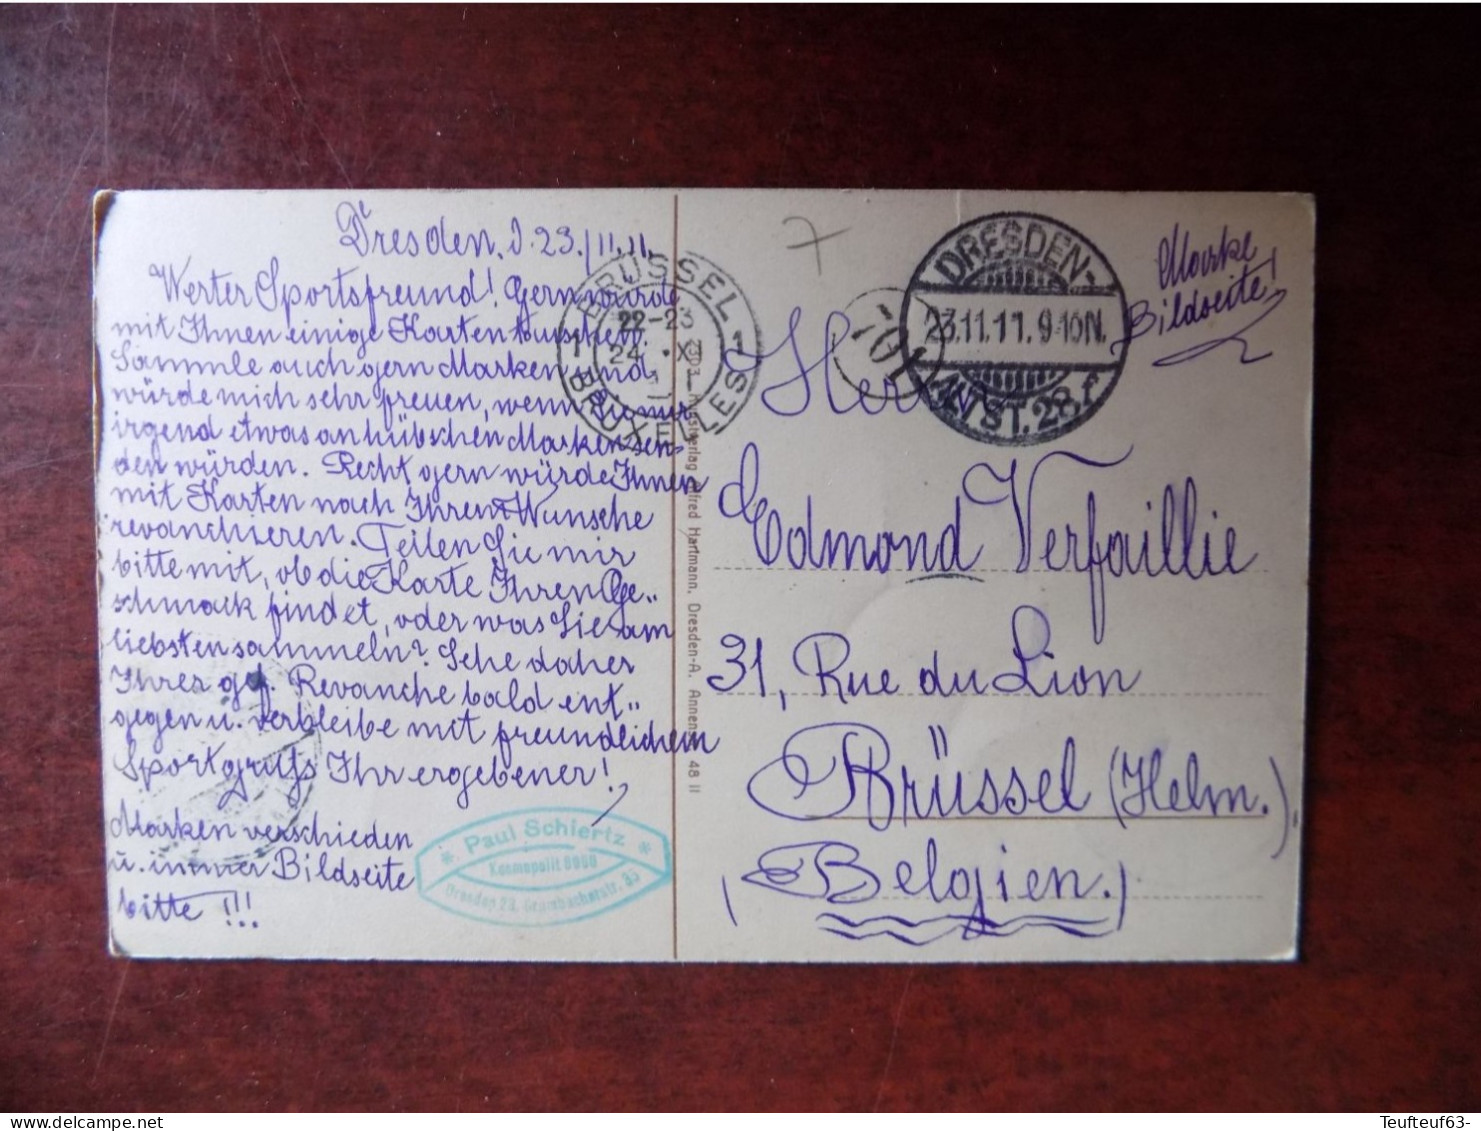 Dresden, d. 23./11.11.
Werter Sportsfreund! Gern würde
mit Ihnen einige Karten tauschen.
Sammle auch gern Marken und
würde mich sehr freuen, wenn Sie mir
irgend etwas an hübschen Marken sen-
den würden. Recht gern würde Ihnen
mit Karten nach Ihrem Wunsche
revanchieren. Teilen Sie mir
bitte mit, ob die Karte Ihren Ge-
schmack findet, oder was Sie am
liebsten sammeln? Sehe daher
Ihrer gfl. Revanche bald ent-
gegen u. verbleibe mit freundlichem
Sportgruß Ihr ergebener!
Marken verschieden
u. immer Bildseite
bitte!!!
* Paul Schiertz *
Kosmopolit 8000
Dresden 28, Grumbacherstr. 35
BRÜSSEL
1 22-23 1
24 XI
BRUXELLES
2303 Kunstverlag Alfred Hartmann, Dresden-A. Annenstr. 48 II
7
701
DRESDEN-
23.11.11.9-10N.
ALTST.28.f
Marke
Bildseite!
Herrn
Edmond Verfaillie
31, Rue du Lion
Brüssel (Helm.)
(Belgien.)
www.delcampe.net
Teufteuf63-